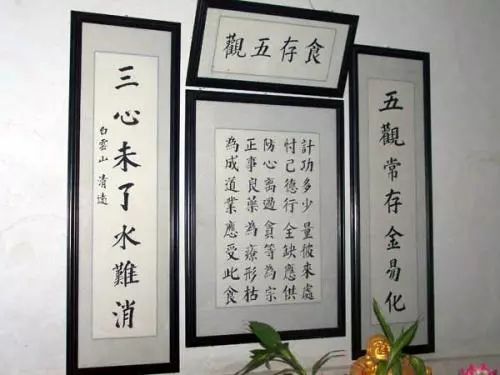 食存五觀
五觀常存金易化
計功多少量彼來處
忖己德行全缺應供
防心离過貪等為宗
正事良藥為療形枯
為成道業應受此食
三心未了水難消
白雲山 清遠